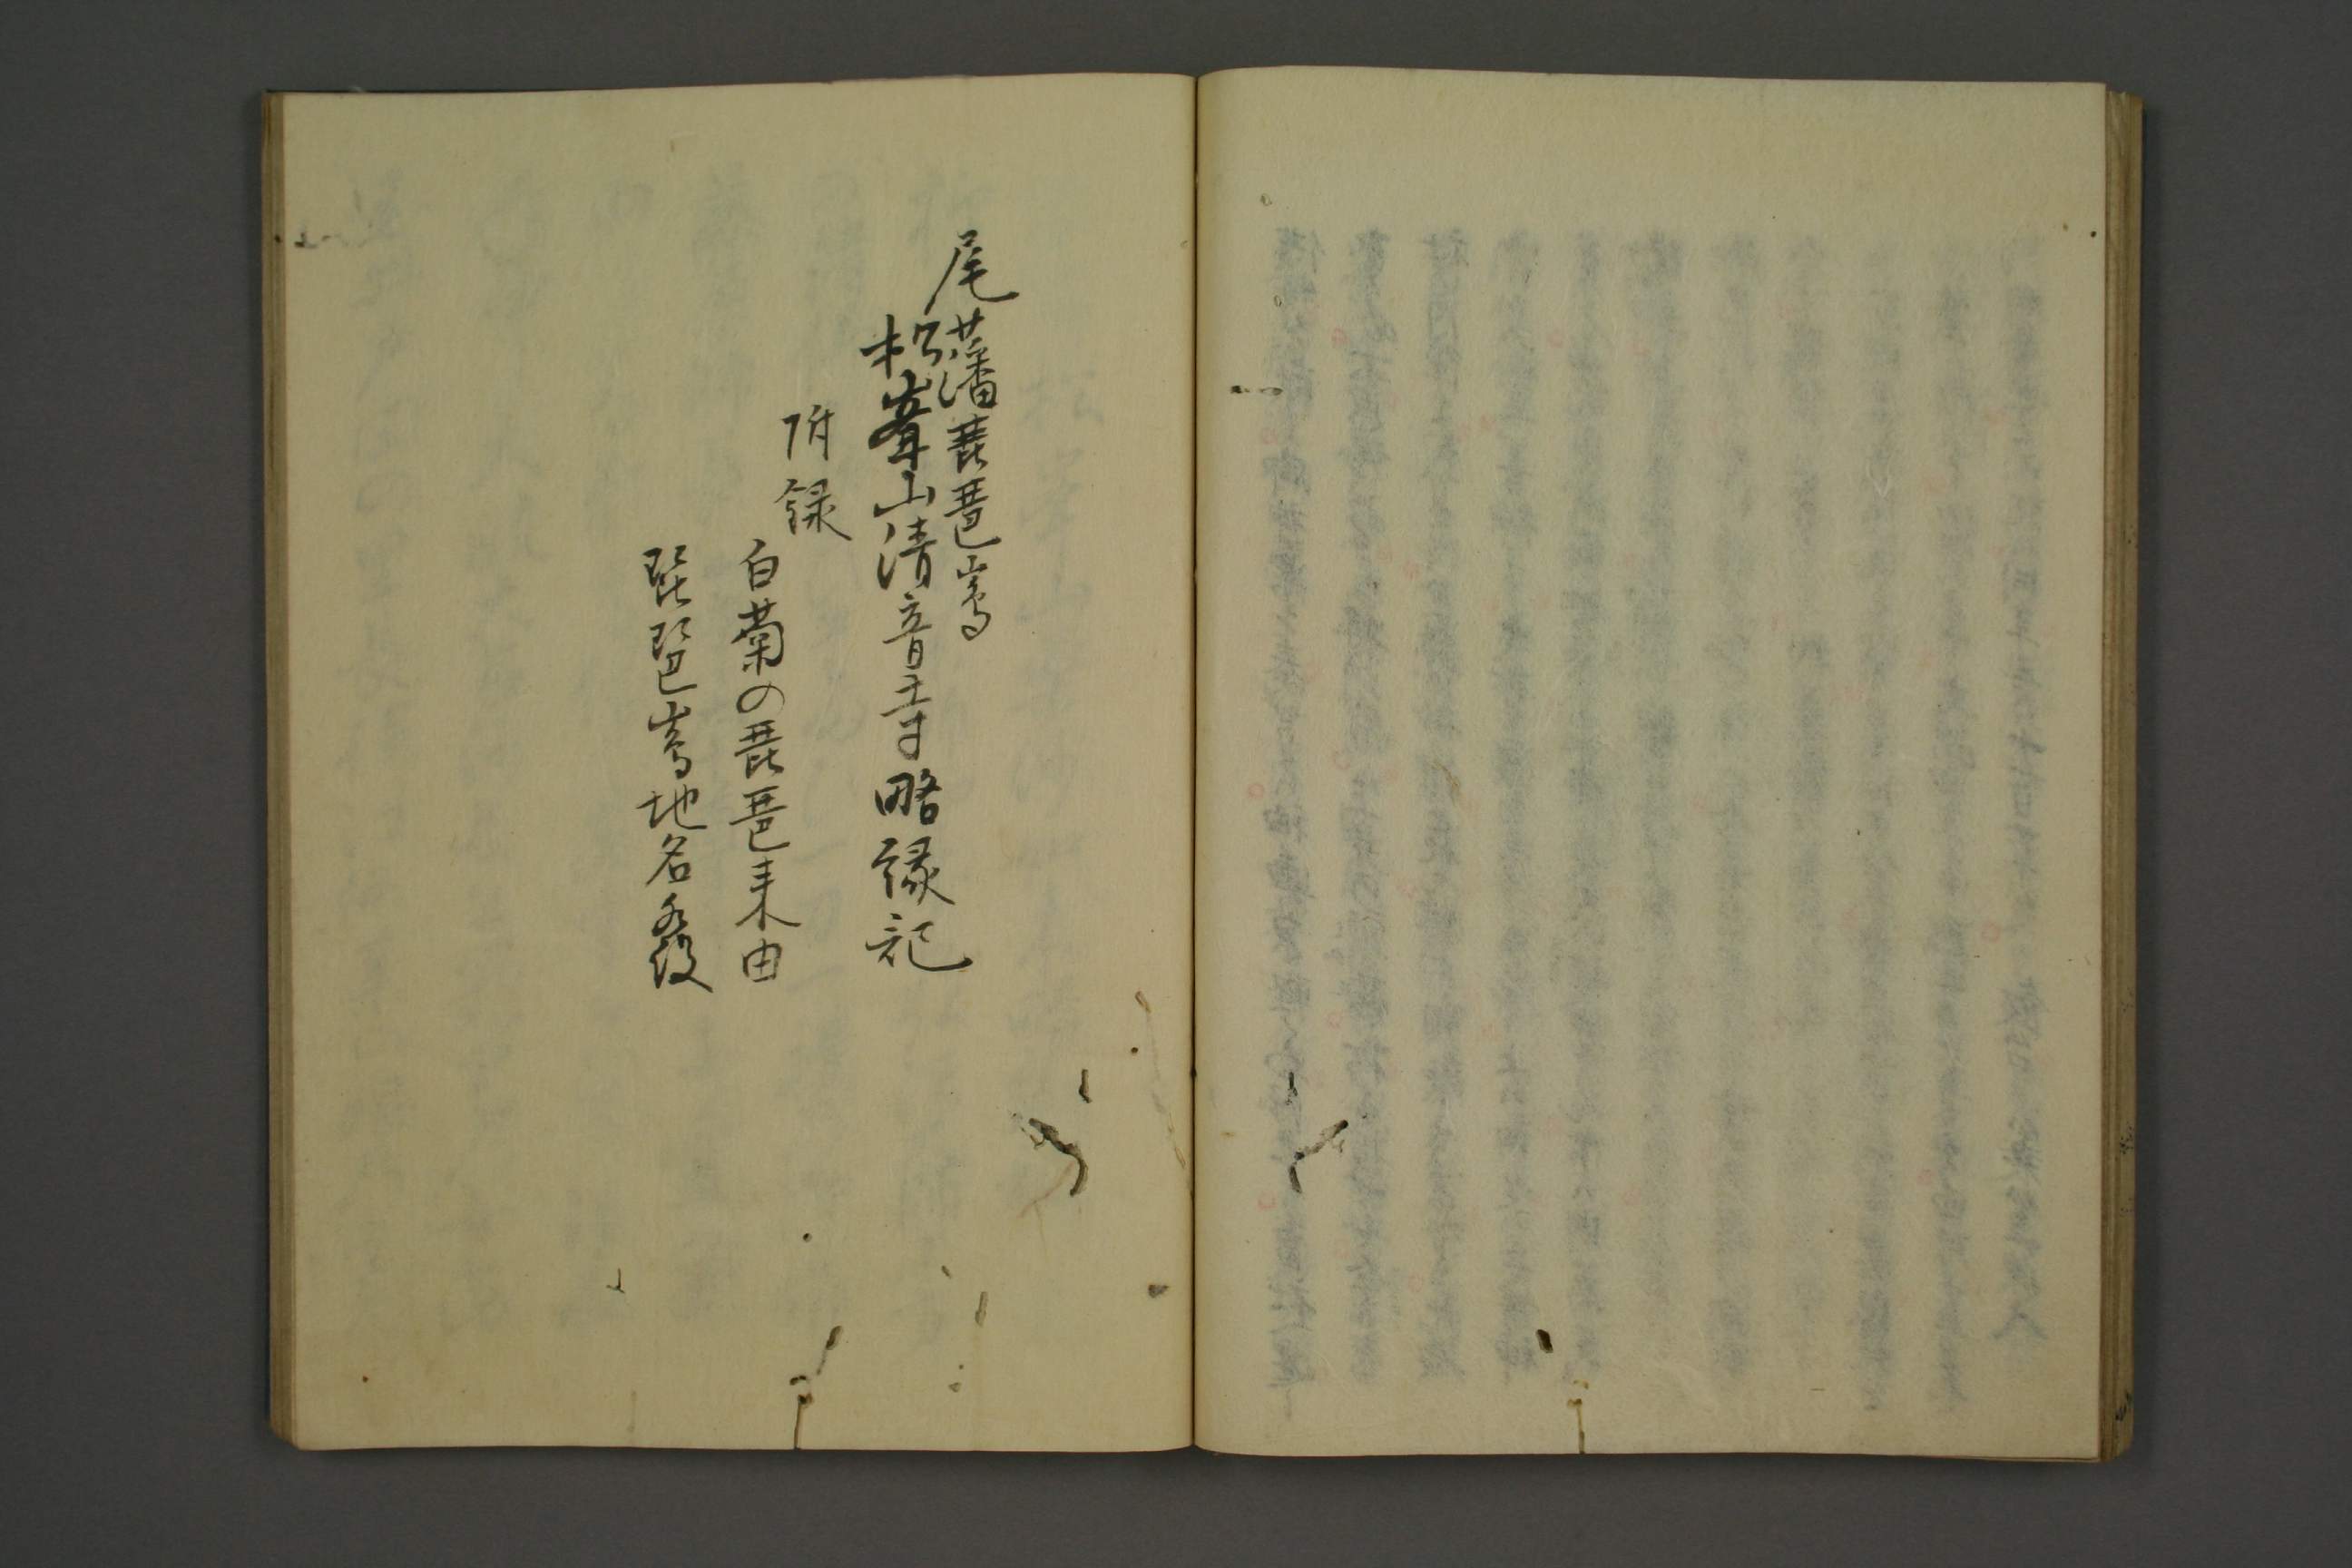 尾藩琵琶嶌
松峯山清音寺略縁記
附録
白菊の琵琶来由
琵琶嶌地名